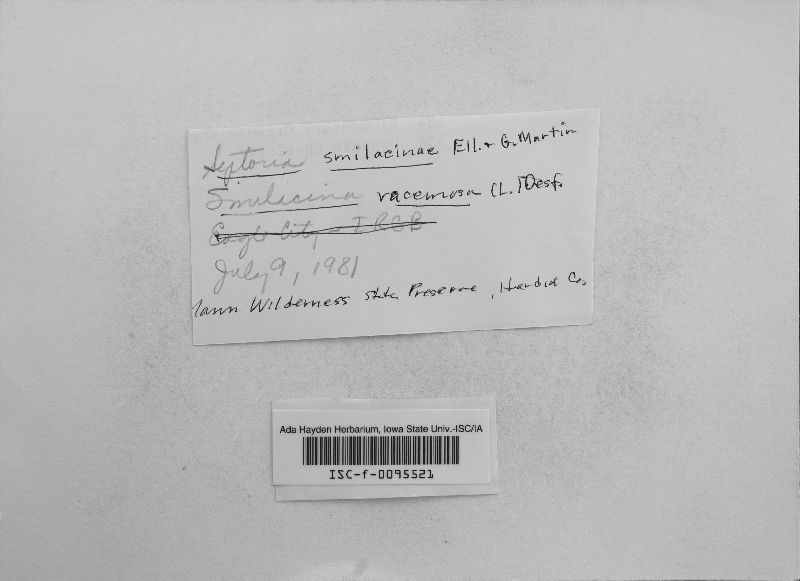 Septoria smilacinae Ell. & G. Martin
Smilicina racemosa (L.) Desf.
Eagle City - IRCB
July 9, 1981
Mann Wilderness State Preserve, Hardin Co.
Ada Hayden Herbarium, Iowa State Univ.-ISC/IA
ISC-f-0095521